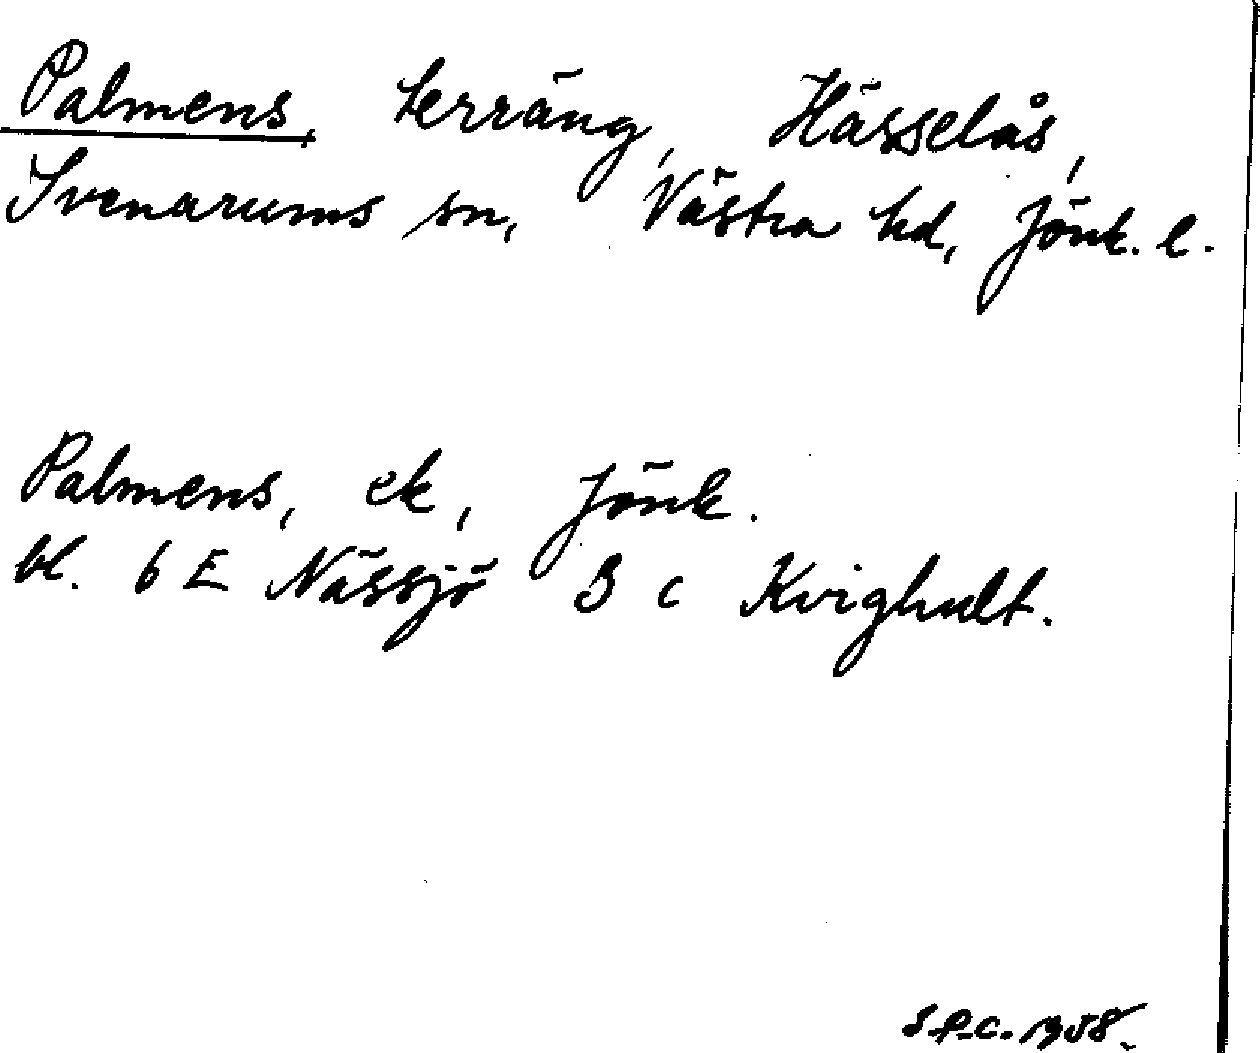 Palmens, terräng, Hässelås,
Svenarums sn, Västra hd, Jönk. l.
Palmens, ek, Jönk.
bl. 6 E Nässjö 3 c Kvighult.
S.P.C. 1958.